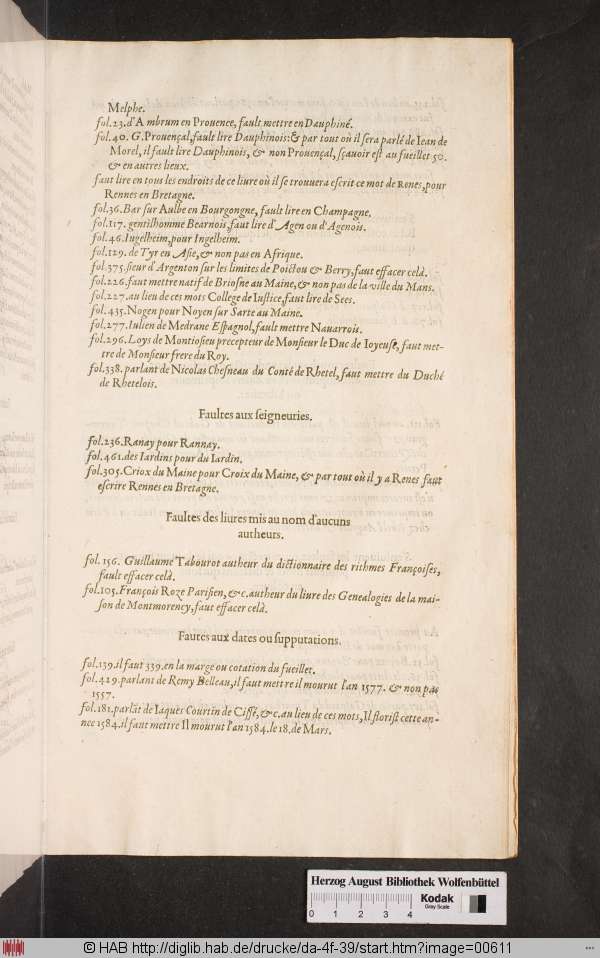 Melphe.
fol.23.d'Ambrum en Prouence, fault mettre en Dauphiné.
fol.40. G.Prouençal, fault lire Dauphinois: & par tout où il sera parlé de Iean de
Morel, il fault lire Dauphinois, & non Prouençal, sçauoir est au fueillet 50.
& en autres lieux.
faut lire en tous les endroits de ce liure où il se trouuera escrit ce mot de Renes, pour
Rennes en Bretagne.
fol.36. Bar sur Aulbe en Bourgongne, fault lire en Champagne.
fol.117. gentilhomme Bearnois, faut lire d'Agen ou d'Agenois.
fol.46. Iugelheim, pour Ingelheim.
fol.129. de Tyr en Asie, & non pas en Afrique.
fol.375. sieur d'Argenton sur les limites de Poictou & Berry, faut effacer celà.
fol.226. faut mettre natif de Briosne au Maine, & non pas de la ville du Mans.
fol.227. au lieu de ces mots College de Iustice, faut lire de Sees.
fol.435. Nogen pour Noyen sur Sarte au Maine.
fol.277. Iulien de Medrane Espagnol, fault mettre Nauarrois.
fol.296. Loys de Montiosieu precepteur de Monsieur le Duc de Ioyeuse, faut met-
tre de Monsieur frere du Roy.
fol.338. parlant de Nicolas Chesneau du Conté de Rhetel, faut mettre du Duché
de Rhetelois.
Faultes aux seigneuries.
fol.236. Ranay pour Rannay.
fol.461. des Iardins pour du Iardin.
fol.305. Criox du Maine pour Croix du Maine, & par tout où il y a Renes faut
escrire Rennes en Bretagne.
Faultes des liures mis au nom d'aucuns
autheurs.
fol. 156. Guillaume Tabourot autheur du dictionnaire des rithmes Françoises,
fault effacer celà.
fol.105. François Roze Parisien, &c. autheur du liure des Genealogies de la mai-
son de Montmorency, faut effacer celà.
Fautes aux dates ou supputations.
fol.139. il faut 339. en la marge ou cotation du fueillet.
fol.429. parlant de Remy Belleau, il faut mettre il mourut l'an 1577. & non pas
1557.
fol.181. parlāt de Iaques Courtin de Cissé, &c. au lieu de ces mots, Il florist cette an-
nee 1584. il faut mettre Il mourut l'an 1584. le 18. de Mars.
Herzog August Bibliothek Wolfenbüttel
0 1 2 3 4
Kodak
Gray Scale
© HAB http://diglib.hab.de/drucke/da-4f-39/start.htm?image=00611